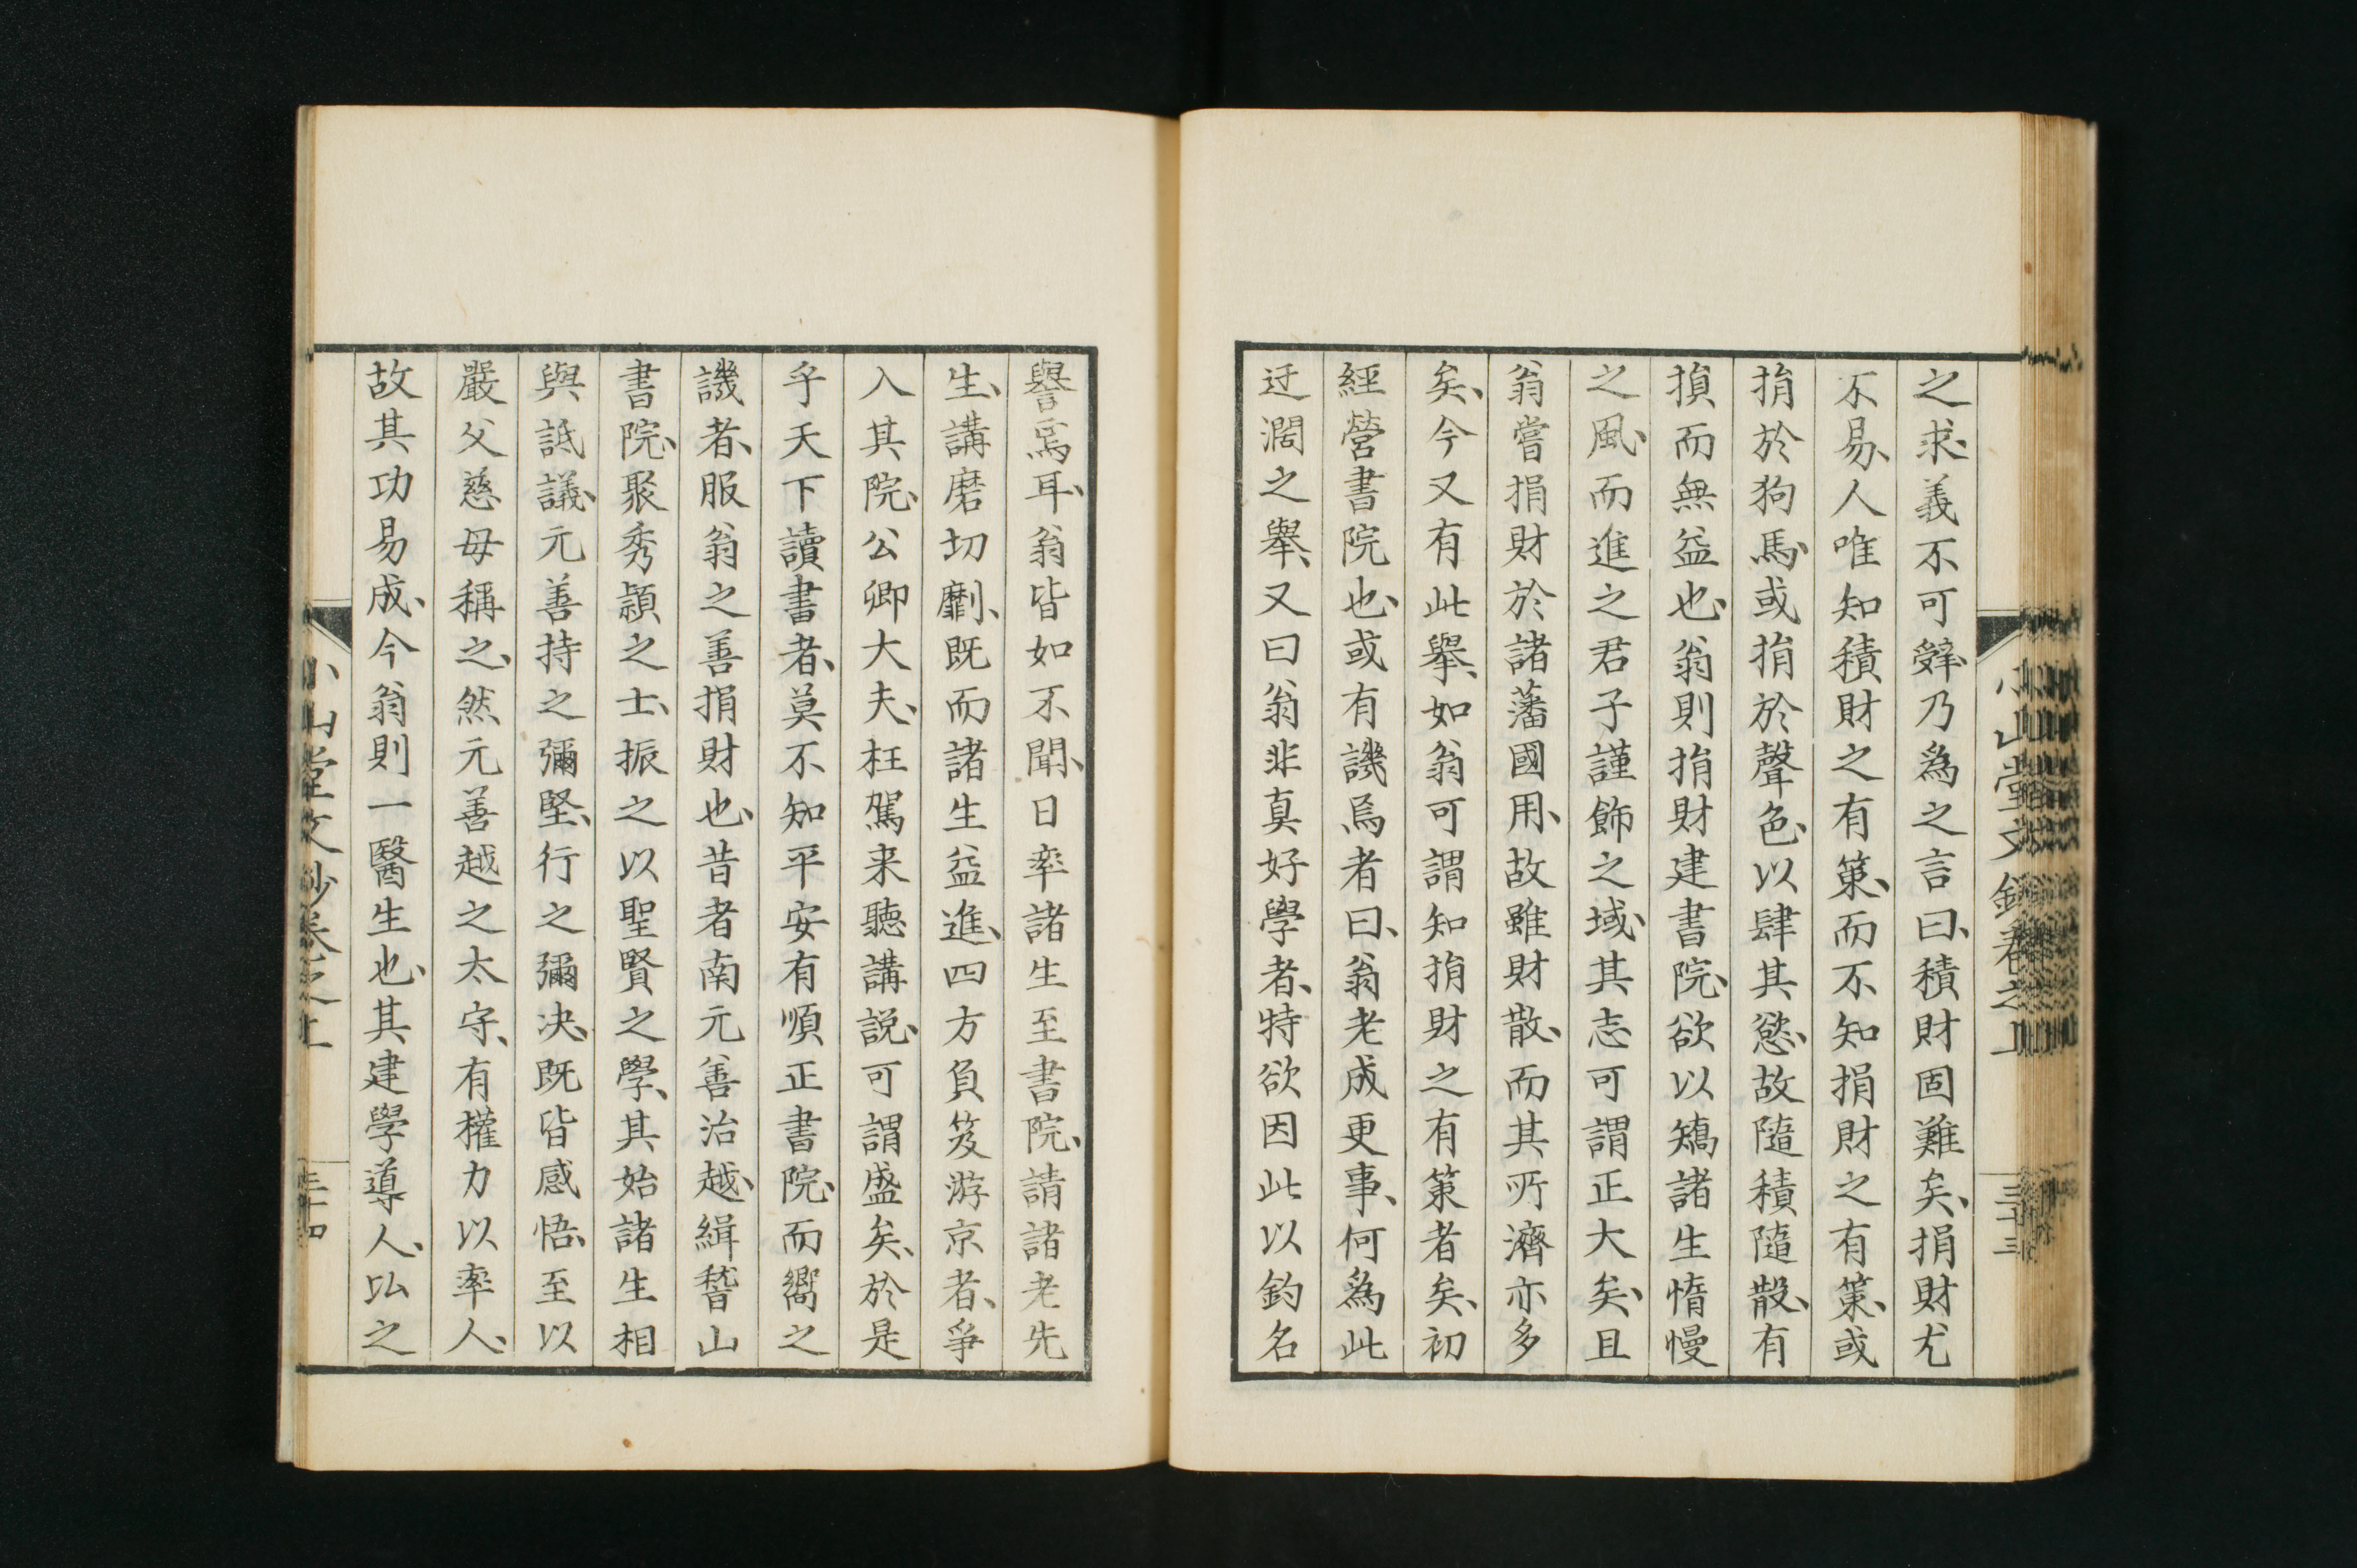 之求義不可辤乃為之言曰、積財固難矣、捐財尤
不易、人唯知積財之有策、而不知捐財之有策、或
捐於狗馬、或捐於聲色、以肆其慾、故隨積隨散、有
損而無益也、翁則捐財建書院、欲以矯諸生惰慢
之風、而進之君子謹飾之域、其志可謂正大矣、且
翁嘗捐財於諸藩國用、故雖財散、而其所濟亦多
矣、今又有此舉、如翁可謂知捐財之有策者矣、初
經營書院也、或有譏焉者曰、翁老成更事、何為此
迂濶之舉、又曰翁非真好學者、特欲因此以釣名
小山堂文鈔卷之上
三十三
譽焉耳、翁皆如不聞、日率諸生至書院、請諸老先
生、講磨切劘、既而諸生益進、四方負笈游京者、爭
入其院、公卿大夫、枉駕来聽講説、可謂盛矣、於是
乎天下讀書者、莫不知平安有順正書院、而嚮之
譏者、服翁之善捐財也、昔者南元善治越、緝稽山
書院、聚秀頴之士、振之以聖賢之學、其始諸生相
與詆議、元善持之彌堅、行之彌决、既皆感悟、至以
嚴父慈母稱之、然元善越之太守、有權力以率人、
故其功易成、今翁則一醫生也、其建學導人、比之
小山堂文鈔卷之上
三十四